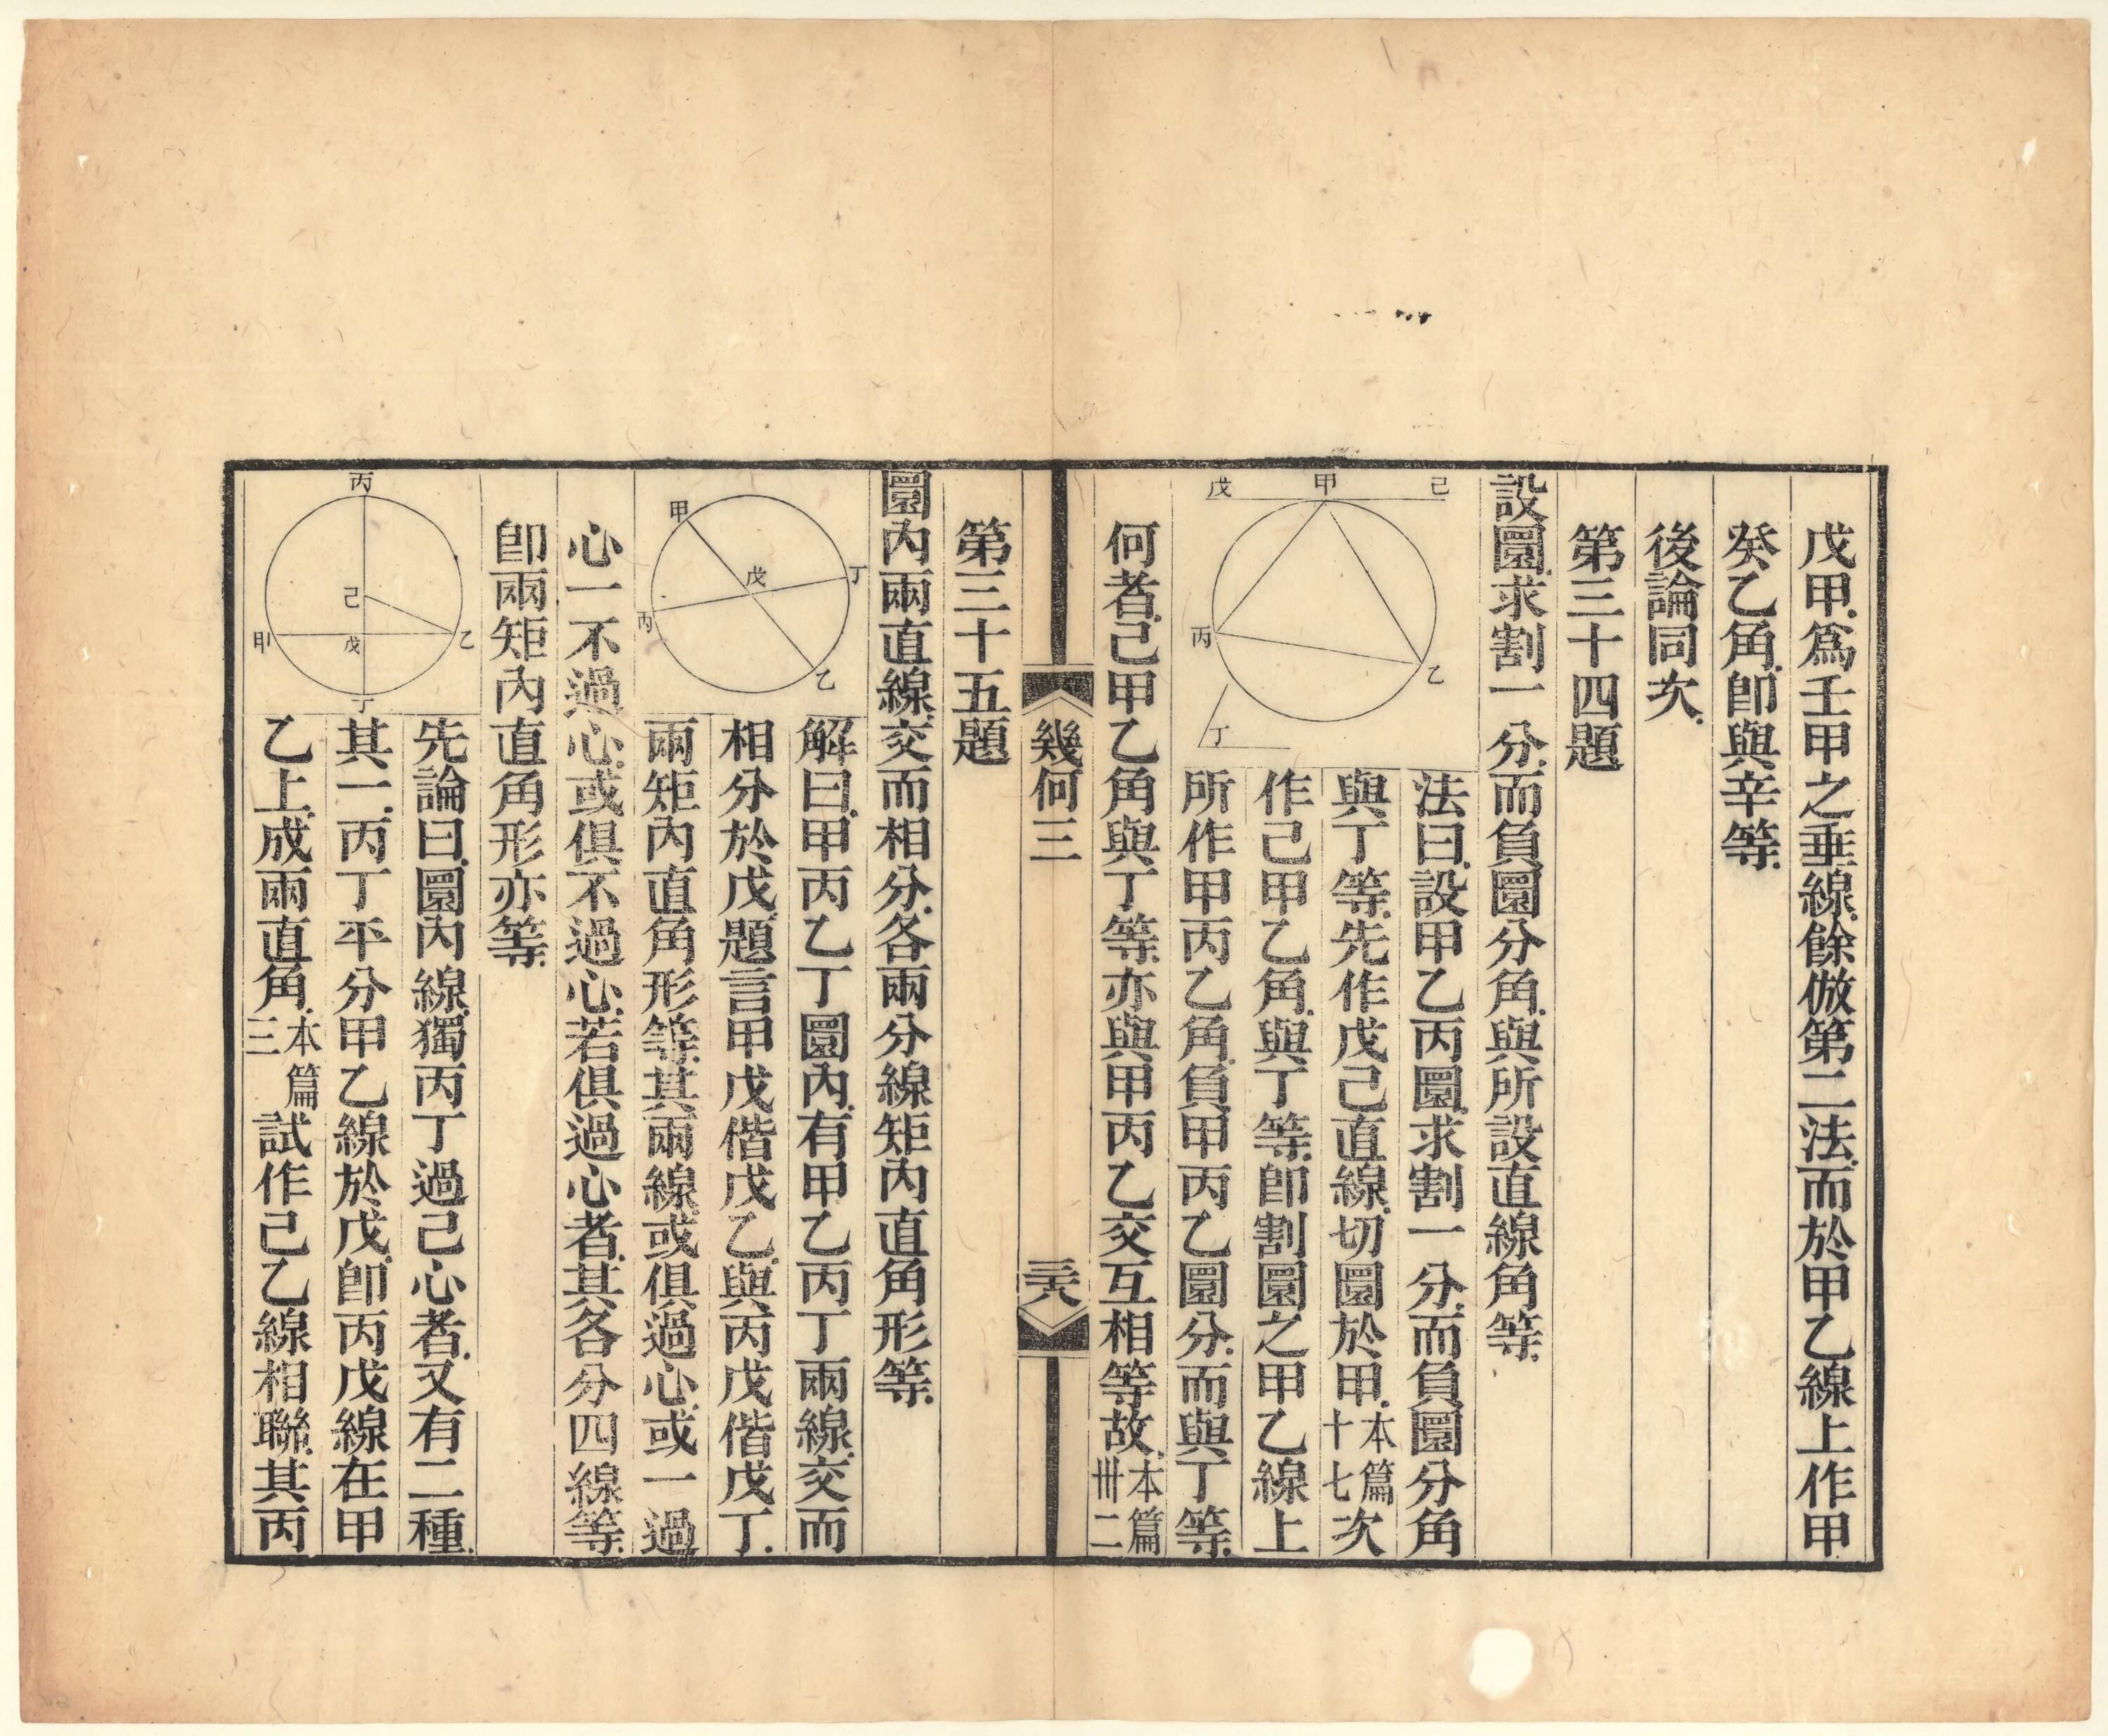 戊甲爲壬甲之垂線餘倣第二法而於甲乙線上作甲
癸乙角卽與辛等
後論同次
第三十四題
設圜求割一分而負圜分角與所設直線角等
己
甲
戊
丙
乙
丁
法曰設甲乙丙圜求割一分而負圜分角
與丁等先作戊己直線切圜於甲本篇十七次
作己甲乙角與丁等卽割圜之甲乙線上
所作甲丙乙角負甲丙乙圜分而與丁等
何者己甲乙角與丁等亦與甲丙乙交互相等故本篇卅二
幾何三
三八
第三十五題
圜內兩直線交而相分各兩分線矩內直角形等
甲
丁
戊
丙
乙
解曰甲丙乙丁圜內有甲乙丙丁兩線交而
相分於戊題言甲戊偕戊乙與丙戊偕戊丁
兩矩內直角形等其兩線或俱過心或一過
心一不過心或俱不過心若俱過心者其各分四線等
卽兩矩內直角形亦等
丙
己
甲
戊
乙
丁
先論曰圜內線獨丙丁過己心者又有二種
其一丙丁平分甲乙線於戊卽丙戊線在甲
乙上成兩直角本篇三試作己乙線相聯其丙